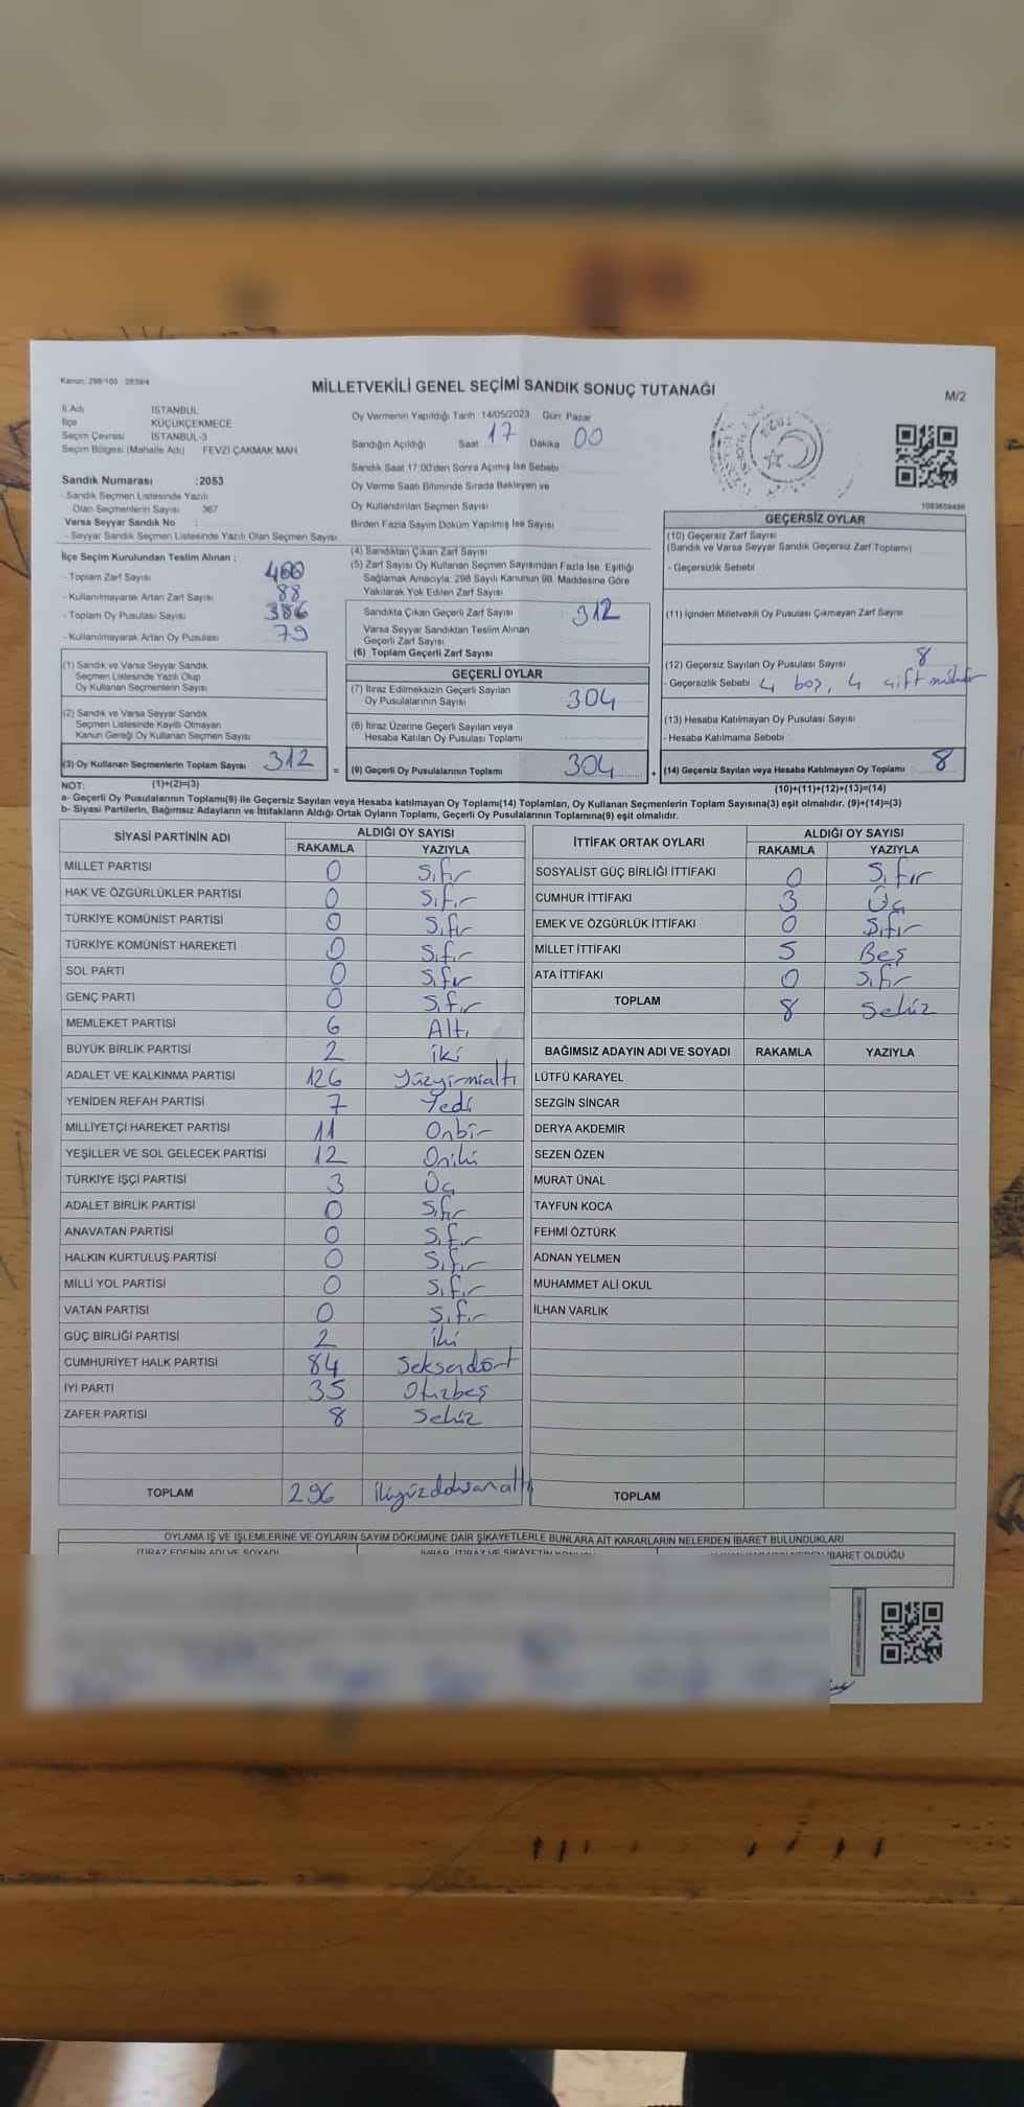 Kanun: 298/105 - 2839/4
MİLLETVEKİLİ GENEL SEÇİMİ SANDIK SONUÇ TUTANAĞI
M/2
İl Adı İSTANBUL
İlçe KÜÇÜKÇEKMECE
Seçim Çevresi İSTANBUL-3
Seçim Bölgesi (Mahalle Adı) FEVZİ ÇAKMAK MAH
Oy Vermenin Yapıldığı Tarih :14/05/2023 Gün: Pazar
Sandığın Açıldığı Saat 17 Dakika 00
Sandık Saat 17.00'den Sonra Açılmış İse Sebebi
Oy Verme Saati Bitiminde Sırada Bekleyen ve
Oy Kullandırılan Seçmen Sayısı
Birden Fazla Sayım Döküm Yapılmış İse Sayısı
Sandık Numarası :2053
- Sandık Seçmen Listesinde Yazılı
Olan Seçmenlerin Sayısı 367
Varsa Seyyar Sandık No :
- Seyyar Sandık Seçmen Listesinde Yazılı Olan Seçmen Sayısı
İlçe Seçim Kurulundan Teslim Alınan :
- Toplam Zarf Sayısı 400
- Kullanılmayarak Artan Zarf Sayısı 88
- Toplam Oy Pusulası Sayısı 386
- Kullanılmayarak Artan Oy Pusulası 79
(1) Sandık ve Varsa Seyyar Sandık
Seçmen Listesinde Yazılı Olup
Oy Kullanan Seçmenlerin Sayısı
(2) Sandık ve Varsa Seyyar Sandık
Seçmen Listesinde Kayıtlı Olmayan
Kanun Gereği Oy Kullanan Seçmen Sayısı
(3) Oy Kullanan Seçmenlerin Toplam Sayısı 312
(1)+(2)=(3)
(4) Sandıktan Çıkan Zarf Sayısı
(5) Zarf Sayısı Oy Kullanan Seçmen Sayısından Fazla İse, Eşitliği
Sağlamak Amacıyla, 298 Sayılı Kanunun 98. Maddesine Göre
Yakılarak Yok Edilen Zarf Sayısı
Sandıkta Çıkan Geçerli Zarf Sayısı 312
Varsa Seyyar Sandıktan Teslim Alınan
Geçerli Zarf Sayısı
(6) Toplam Geçerli Zarf Sayısı
GEÇERLİ OYLAR
(7) İtiraz Edilmeksizin Geçerli Sayılan
Oy Pusulalarının Sayısı 304
(8) İtiraz Üzerine Geçerli Sayılan veya
Hesaba Katılan Oy Pusulası Toplamı
= (9) Geçerli Oy Pusulalarının Toplamı 304
1083659486
GEÇERSİZ OYLAR
(10) Geçersiz Zarf Sayısı
(Sandık ve Varsa Seyyar Sandık Geçersiz Zarf Toplamı)
- Geçersizlik Sebebi
(11) İçinden Milletvekili Oy Pusulası Çıkmayan Zarf Sayısı
(12) Geçersiz Sayılan Oy Pusulası Sayısı 8
- Geçersizlik Sebebi 4 boş, 4 çift mühür
(13) Hesaba Katılmayan Oy Pusulası Sayısı
- Hesaba Katılmama Sebebi
+ (14) Geçersiz Sayılan veya Hesaba Katılmayan Oy Toplamı 8
(10)+(11)+(12)+(13)=(14)
NOT:
a- Geçerli Oy Pusulalarının Toplamı(9) ile Geçersiz Sayılan veya Hesaba katılmayan Oy Toplamı(14) Toplamları, Oy Kullanan Seçmenlerin Toplam Sayısına(3) eşit olmalıdır. (9)+(14)=(3)
b- Siyasi Partilerin, Bağımsız Adayların ve İttifakların Aldığı Ortak Oyların Toplamı, Geçerli Oy Pusulalarının Toplamına(9) eşit olmalıdır.
SİYASİ PARTİNİN ADI ALDIĞI OY SAYISI
RAKAMLA YAZIYLA
MİLLET PARTİSİ 0 Sıfır
HAK VE ÖZGÜRLÜKLER PARTİSİ 0 Sıfır
TÜRKİYE KOMÜNİST PARTİSİ 0 Sıfır
TÜRKİYE KOMÜNİST HAREKETİ 0 Sıfır
SOL PARTİ 0 Sıfır
GENÇ PARTİ 0 Sıfır
MEMLEKET PARTİSİ 6 Altı
BÜYÜK BİRLİK PARTİSİ 2 iki
ADALET VE KALKINMA PARTİSİ 126 Yüzyirmialtı
YENİDEN REFAH PARTİSİ 7 Yedi
MİLLİYETÇİ HAREKET PARTİSİ 11 Onbir
YEŞİLLER VE SOL GELECEK PARTİSİ 12 Oniki
TÜRKİYE İŞÇİ PARTİSİ 3 Üç
ADALET BİRLİK PARTİSİ 0 Sıfır
ANAVATAN PARTİSİ 0 Sıfır
HALKIN KURTULUŞ PARTİSİ 0 Sıfır
MİLLİ YOL PARTİSİ 0 Sıfır
VATAN PARTİSİ 0 Sıfır
GÜÇ BİRLİĞİ PARTİSİ 2 iki
CUMHURİYET HALK PARTİSİ 84 Seksendört
İYİ PARTİ 35 Otuzbeş
ZAFER PARTİSİ 8 Sekiz
TOPLAM 296 ikiyüzdoksanaltı
İTTİFAK ORTAK OYLARI ALDIĞI OY SAYISI
RAKAMLA YAZIYLA
SOSYALİST GÜÇ BİRLİĞİ İTTİFAKI 0 Sıfır
CUMHUR İTTİFAKI 3 Üç
EMEK VE ÖZGÜRLÜK İTTİFAKI 0 Sıfır
MİLLET İTTİFAKI 5 Beş
ATA İTTİFAKI 0 Sıfır
TOPLAM 8 Sekiz
BAĞIMSIZ ADAYIN ADI VE SOYADI RAKAMLA YAZIYLA
LÜTFÜ KARAYEL
SEZGİN SİNCAR
DERYA AKDEMİR
SEZEN ÖZEN
MURAT ÜNAL
TAYFUN KOCA
FEHMİ ÖZTÜRK
ADNAN YELMEN
MUHAMMET ALİ OKUL
İLHAN VARLIK
TOPLAM
OYLAMA İŞ VE İŞLEMLERİNE VE OYLARIN SAYIM DÖKÜMÜNE DAİR ŞİKAYETLERLE BUNLARA AİT KARARLARIN NELERDEN İBARET BULUNDUKLARI
İTİRAZ EDENİN ADI VE SOYADI
İBARET OLDUĞU